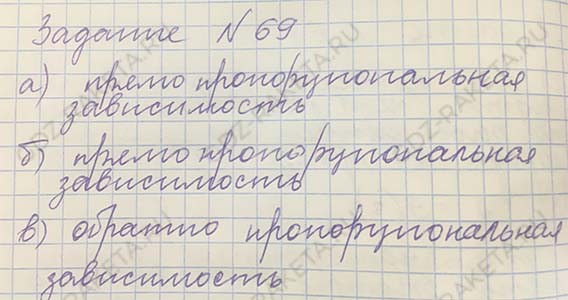 Задание N 69
а) прямо пропорциональная
зависимость
б) прямо пропорциональная
зависимость
в) обратно пропорциональная
зависимость